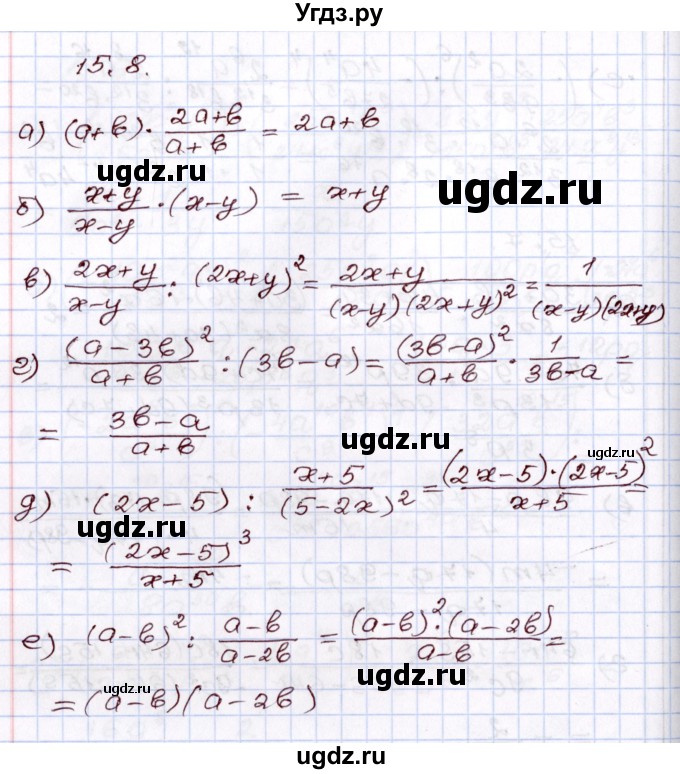 Угдз.ру
15.8.
а) (a+b) · (2a+b)/(a+b) = 2a+b
ugdz.ru
ugdz.ru
б) (x+y)/(x-y) · (x-y) = x+y
в) (2x+y)/(x-y) : (2x+y)² = (2x+y)/((x-y)(2x+y)²) = 1/((x-y)(2x+y))
г) (a-3b)²/(a+b) : (3b-a) = (3b-a)²/(a+b) · 1/(3b-a) =
= (3b-a)/(a+b)
ugdz.ru
ugdz.ru
д) (2x-5) : (x+5)/(5-2x)² = ((2x-5)·(2x-5)²)/(x+5) =
ugdz.ru
= (2x-5)³/(x+5)
е) (a-b)² : (a-b)/(a-2b) = ((a-b)²·(a-2b))/(a-b) =
ugdz.ru
ugdz.ru
= (a-b)(a-2b)
ugdz.ru